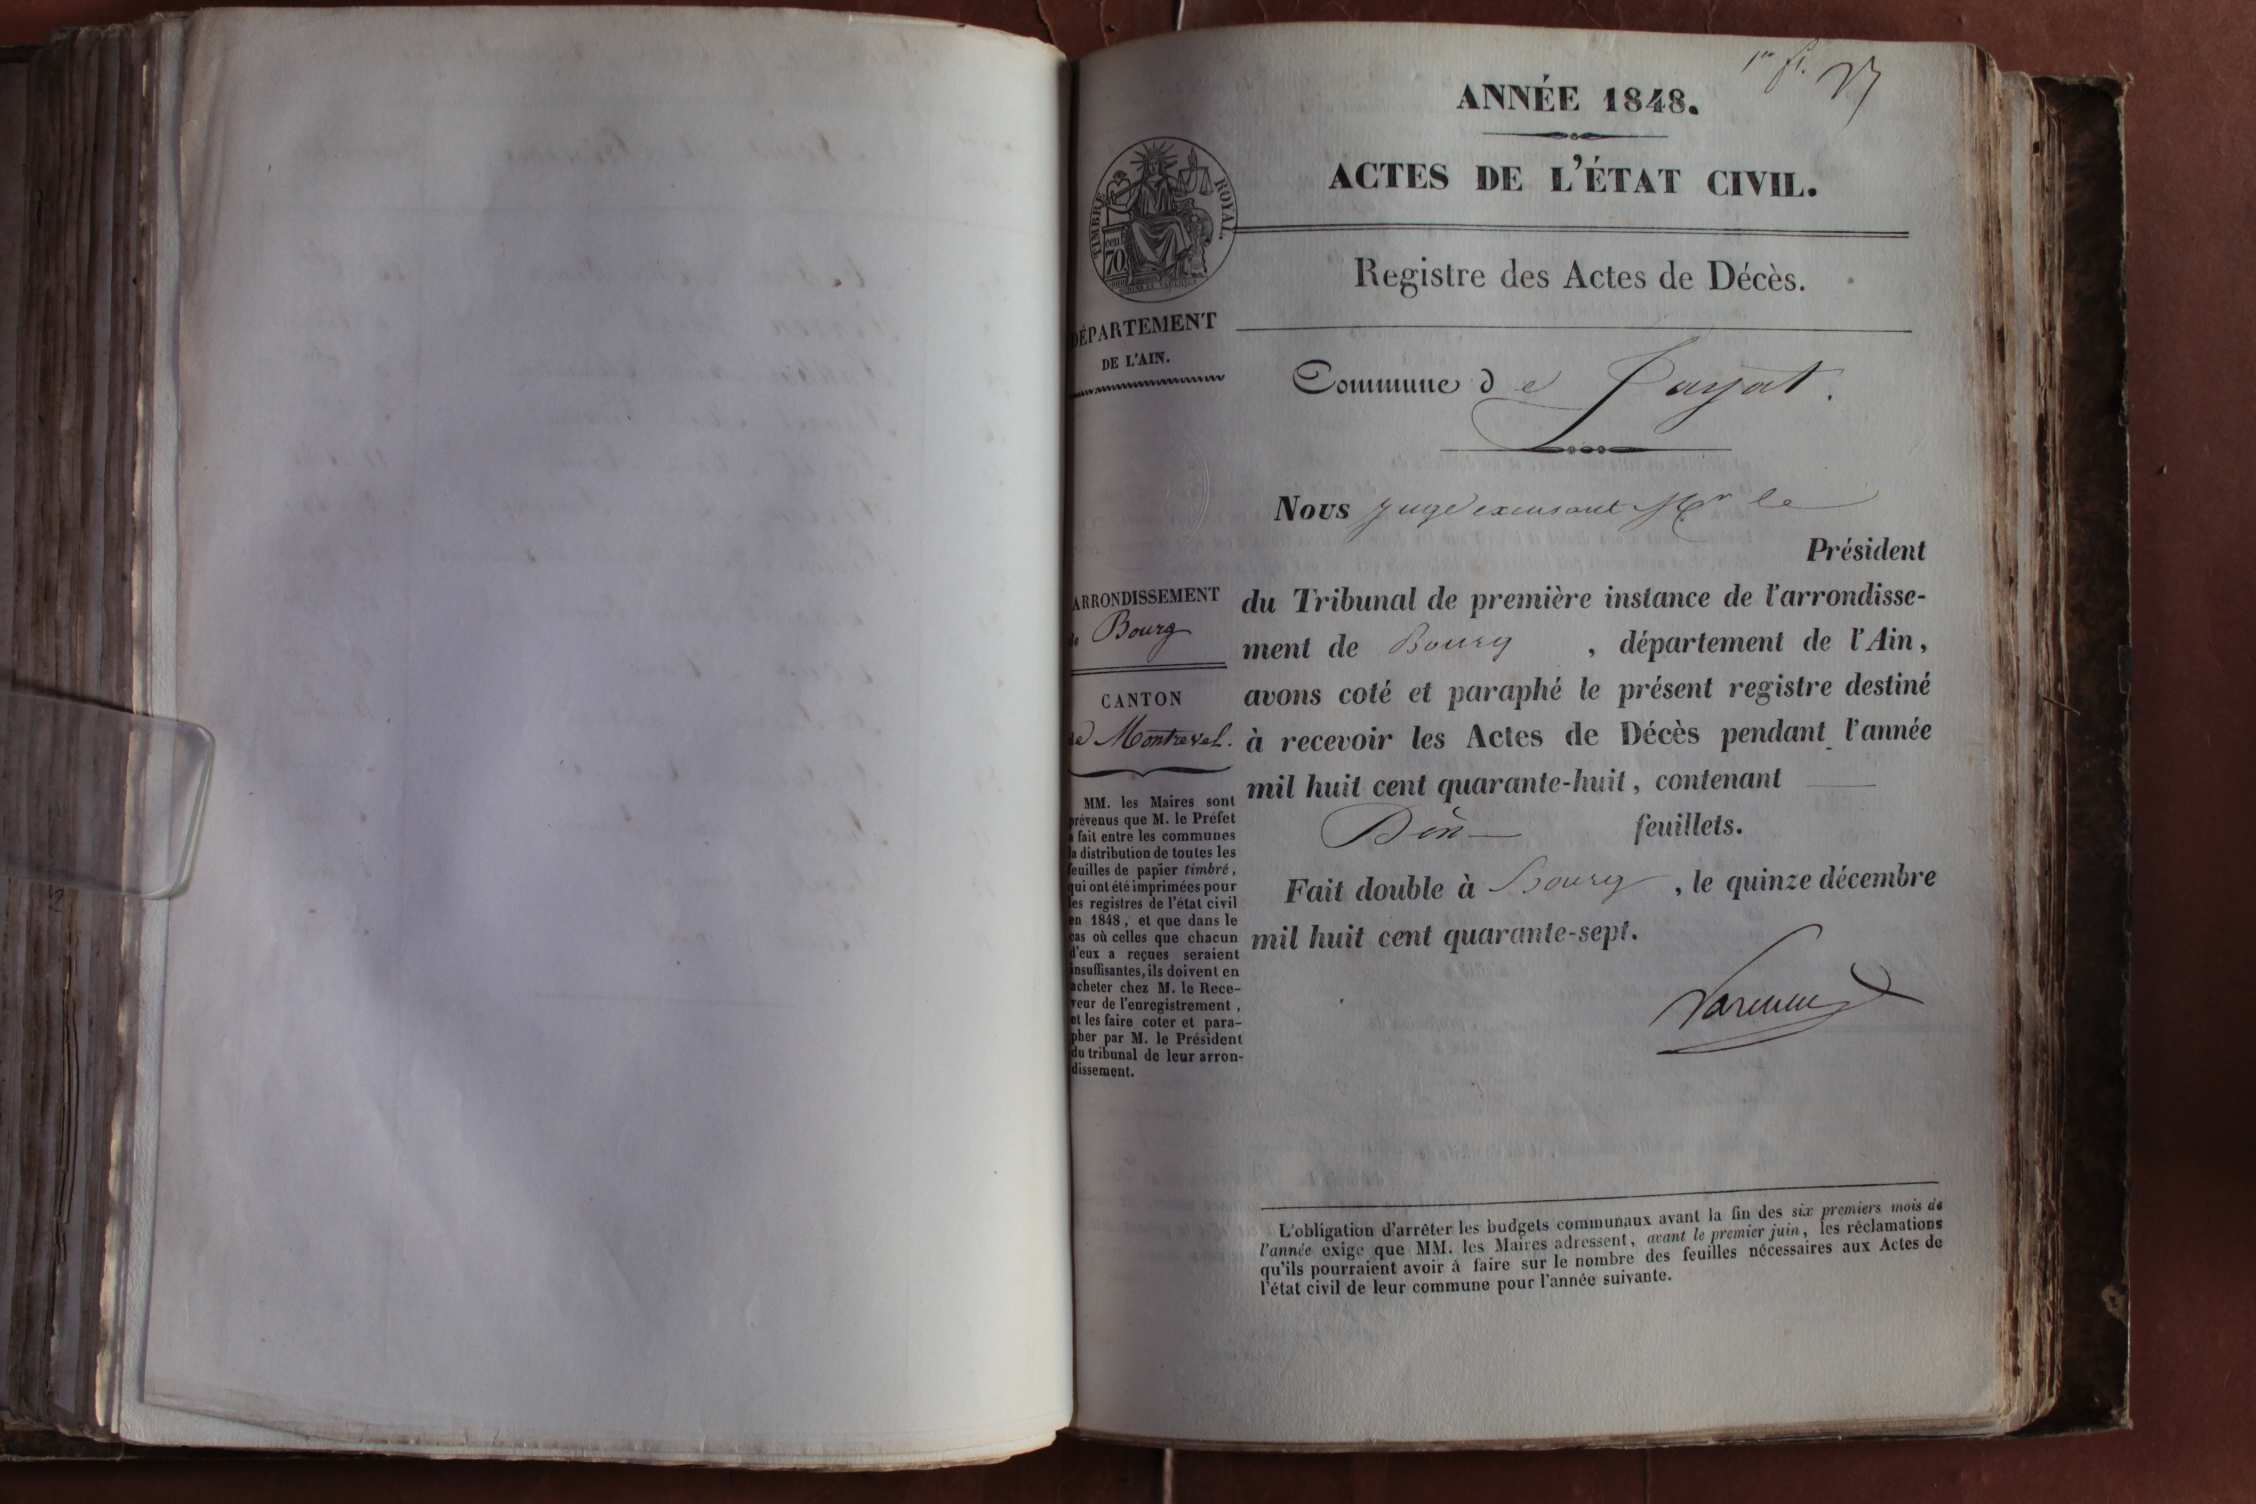 1er f.
ANNÉE 1848.
ACTES DE L'ÉTAT CIVIL.
TIMBRE ROYAL
cen
70
Registre des Actes de Décès.
DÉPARTEMENT
DE L'AIN.
Commune de Jayat.
Nous juge excusant Mr le
Président
du Tribunal de première instance de l'arrondisse-
ment de Bourg , département de l'Ain,
avons coté et paraphé le présent registre destiné
à recevoir les Actes de Décès pendant l'année
mil huit cent quarante-huit, contenant
Dix feuillets.
Fait double à Bourg , le quinze décembre
mil huit cent quarante-sept.
ARRONDISSEMENT
de Bourg
CANTON
de Montrevel.
MM. les Maires sont
prévenus que M. le Préfet
a fait entre les communes
la distribution de toutes les
feuilles de papier timbré,
qui ont été imprimées pour
les registres de l'état civil
en 1848, et que dans le
cas où celles que chacun
d'eux a reçues seraient
insuffisantes, ils doivent en
acheter chez M. le Rece-
veur de l'enregistrement,
et les faire coter et para-
pher par M. le Président
du tribunal de leur arron-
dissement.
L'obligation d'arrêter les budgets communaux avant la fin des six premiers mois de
l'année exige que MM. les Maires adressent, avant le premier juin, les réclamations
qu'ils pourraient avoir à faire sur le nombre des feuilles nécessaires aux Actes de
l'état civil de leur commune pour l'année suivante.